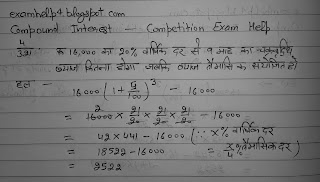 examhelp4.blogspot.com
Compound Interest --- Competition Exam Help
4
उदा: रु 16,000 का 20% वार्षिक दर से 9 माह का चक्रवृद्धि
ब्याज कितना होगा जबकि ब्याज तैमासिक संयोजित हो
हल -
16000 (1 + 5/100)³ - 16000
= 16000 × 21/20 × 21/20 × 21/20 - 16000
2
= 42 × 441 - 16000 (∵ x% वार्षिक दर
= 18522 - 16000 = x/4% त्रैमासिक दर)
= 2522